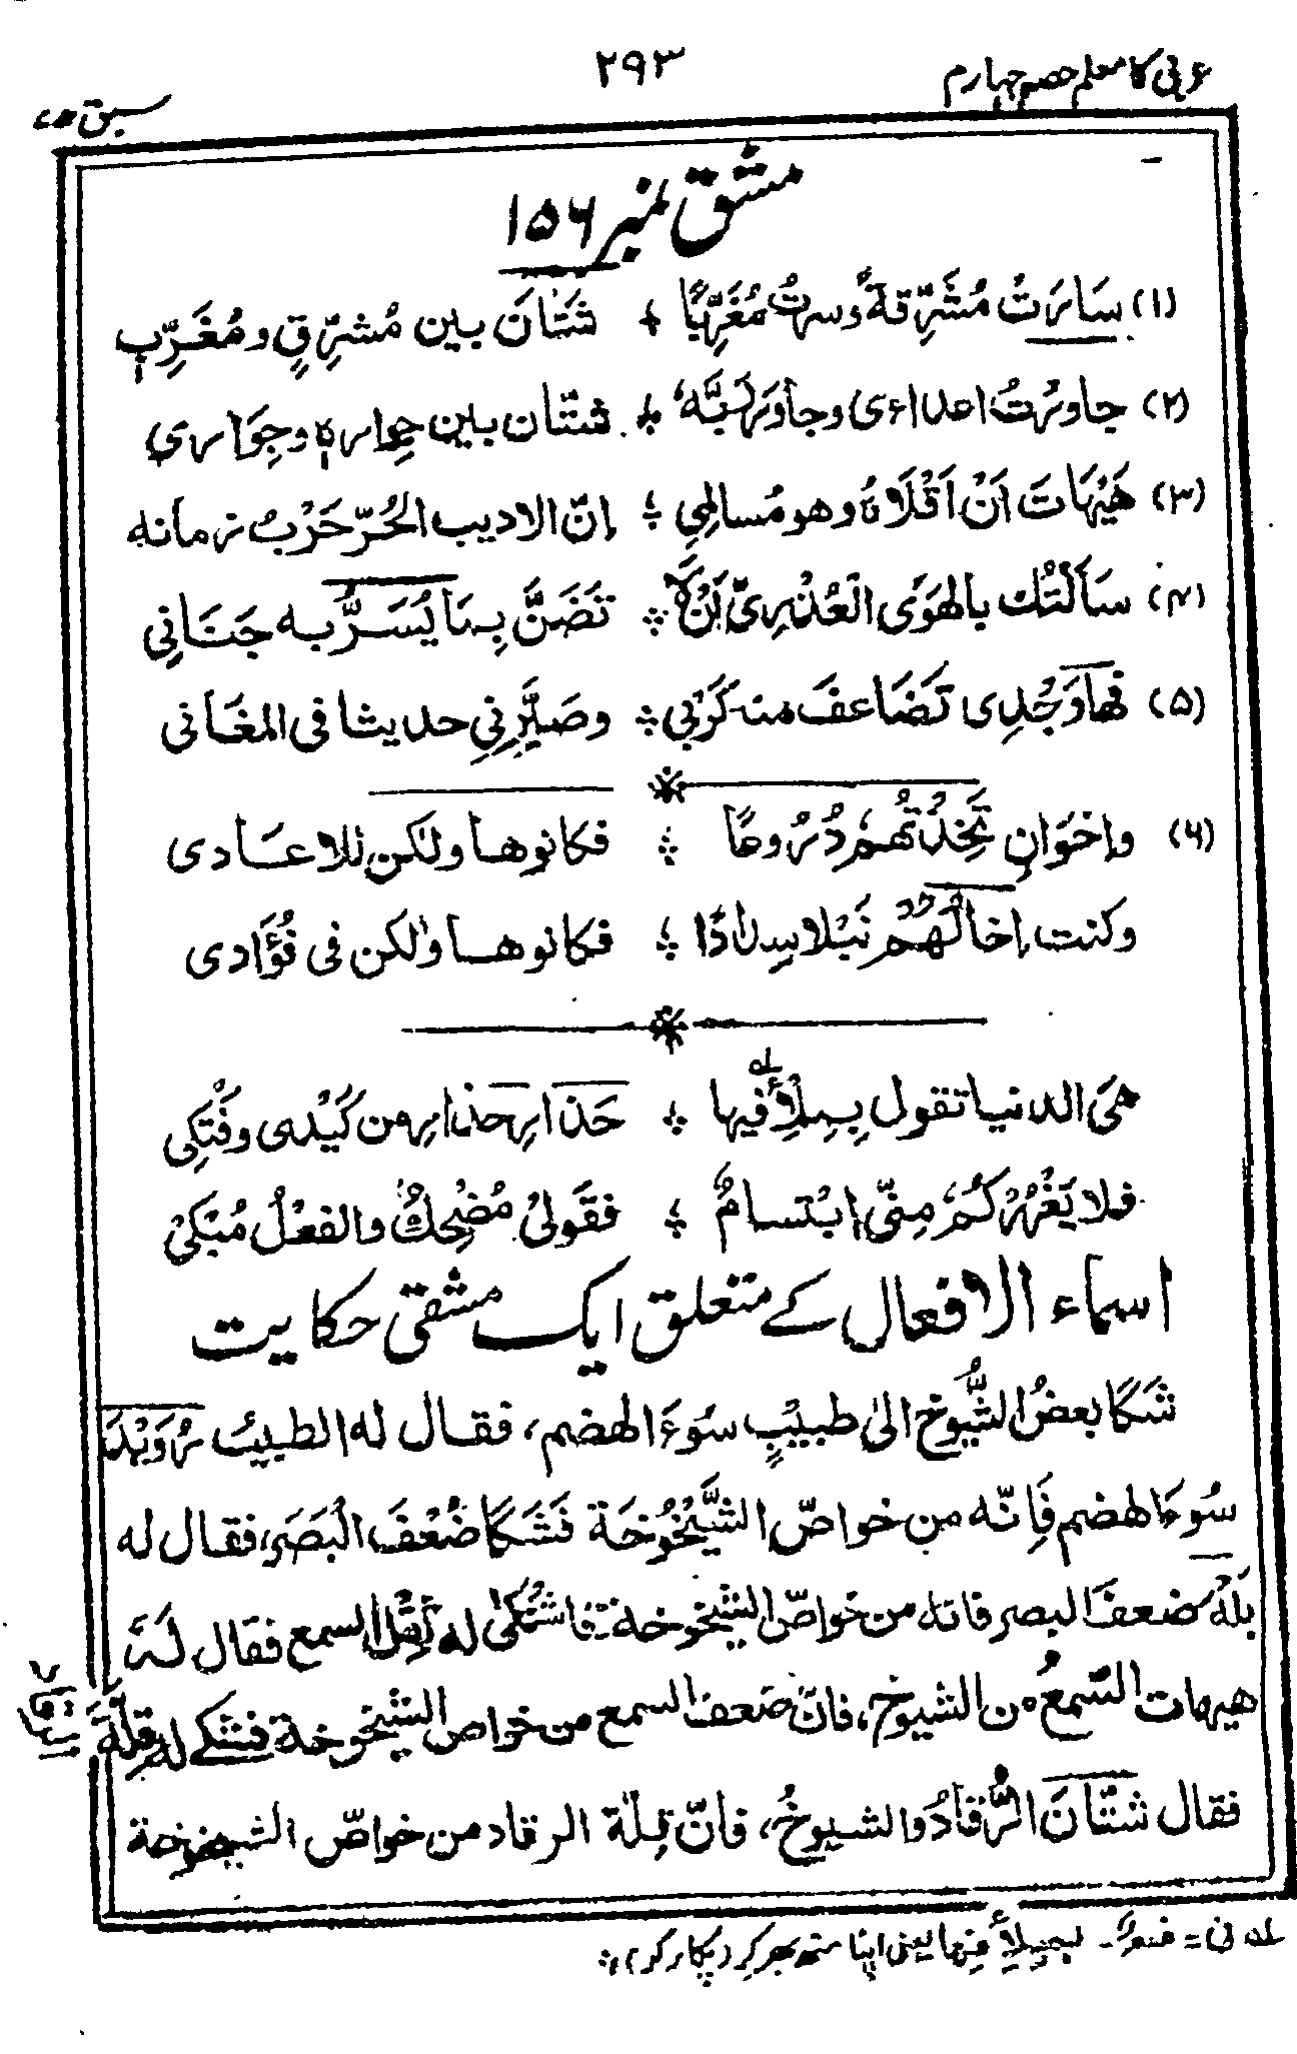 عربی کا معلم حصہ چہارم
۲۹۳
سبق
مشق نمبر ۱۵۶
(۱) سَارَتْ مُشَرِّقةً وسرتُ مُغَرِّبًا ؛ شَتَّانَ بين مُشرِّقٍ ومُغَرِّبٖ
(۲) جاورتُ اعداءی وجاوَرَ رَبَّهٗ ؛ شتّان بين جِوارہٖ وجِوَاری
(۳) هَيْهَاتَ اَنْ اَقْلَاهُ وهو مُسالمِي ؛ اِنّ الاديب الحُرّ حَرْبُ زمانه
(۴) سَاَلْتُك بالهَوَى العُذْرِيّ اَنْ لَا ؛ تَضَنَّ بِمَا يُسَرُّ به جَنَانِي
(۵) فها وَجْدِی تَضَاعفَ منه كَرْبي ؛ وصَيَّرنِي حديثا فی المغَانی
(۶) واِخوَانٍ تَخِذْتُهُمُ دُرُوعًا ؛ فكانوها ولٰكن للاعَادی
وكنت اِخالُهُمْ نَبْلا سِدَادًا ؛ فكانوها ولٰكن فی فُؤَادی
هیَ الدنيا تقول بِمِلْأِ فيها ؛ حَذَارِ حَذَارِ من كَيْدی وفَتْكِی
فلا يَغْرُرْكُمُ مِنِّی ابْتسامٌ ؛ فقَولیْ مُضْحِكٌ والفعْلُ مُبْكیْ
اسماء الافعال کے متعلق ایک مشقی حکایت
شَكَا بعضُ الشُّيوخ الیٰ طبيبٍ سُوءَ الهضم، فقال له الطبيبُ رُوَيْدَ
سُوءَ الهضم فَاِنّه من خواصّ الشَّيْخُوخَة فَشَكَا ضُعْفَ الْبَصَرِ، فقال له
بَلْهَ ضعفَ البصر فانه من خواصّ الشيخوخة فاشتكیٰ له ثِقْلَ السمع فقال لَهٗ
هيهات السّمعُ من الشيوخ، فانّ ضعف السمع من خواص الشيخوخة فشكے له قِلّةَ
فقال شتّانَ الرُّقادُ والشيوخُ، فانّ قِلّة الرقاد من خواصّ الشيخوخة
لہ فی = فم - بمِلْأِ فيها یعنی اپنا منہ بھر کر (پکار کر) ؛